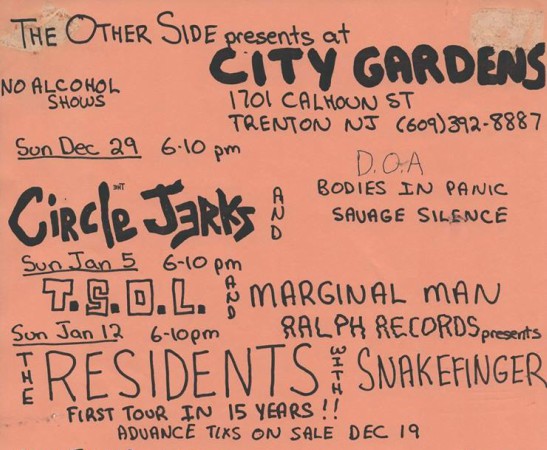 THE OTHER SIDE presents at
CITY GARDENS
NO ALCOHOL
SHOWS
1701 CALHOUN ST
TRENTON NJ (609)392-8887
Sun Dec 29 6-10 pm
D.O.A
BODIES IN PANIC
SAVAGE SILENCE
CIRCLE JERKS AND
Sun Jan 5 6-10 pm
T.S.O.L. AND MARGINAL MAN
Sun Jan 12 6-10pm
RALPH RECORDS presents
THE RESIDENTS WITH SNAKEFINGER
FIRST TOUR IN 15 YEARS !!
ADVANCE TIXS ON SALE DEC 19